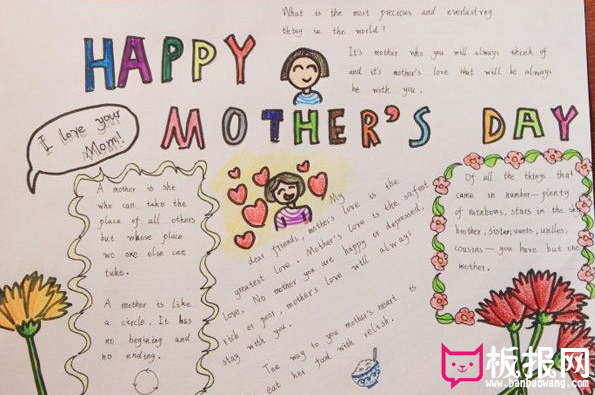 What is the most precious and everlasting
thing in the world?
It's mother who you will always think of
and it's mother's love that will be always
be with you.
HAPPY
MOTHER'S DAY
I love your
Mom!
A mother is she
who can take the
place of all others
but whose place
wo one else can
take.
A mother is like
a circle. It has
no begining and
no ending.
My
dear friends, mother's love is the
greatest love. Mother's love is the safest
love. No mother you are happy or depressed,
rich or poor, mother's love will always
stay with you.
The way to you mother's heart is
eat her fund with relish.
Of all the things that
came in number—plenty
of rainbows, stars in the sky
brother, sister, aunts, unlles,
cousins—you have but one
mother.
板报网
www.banbaowang.com